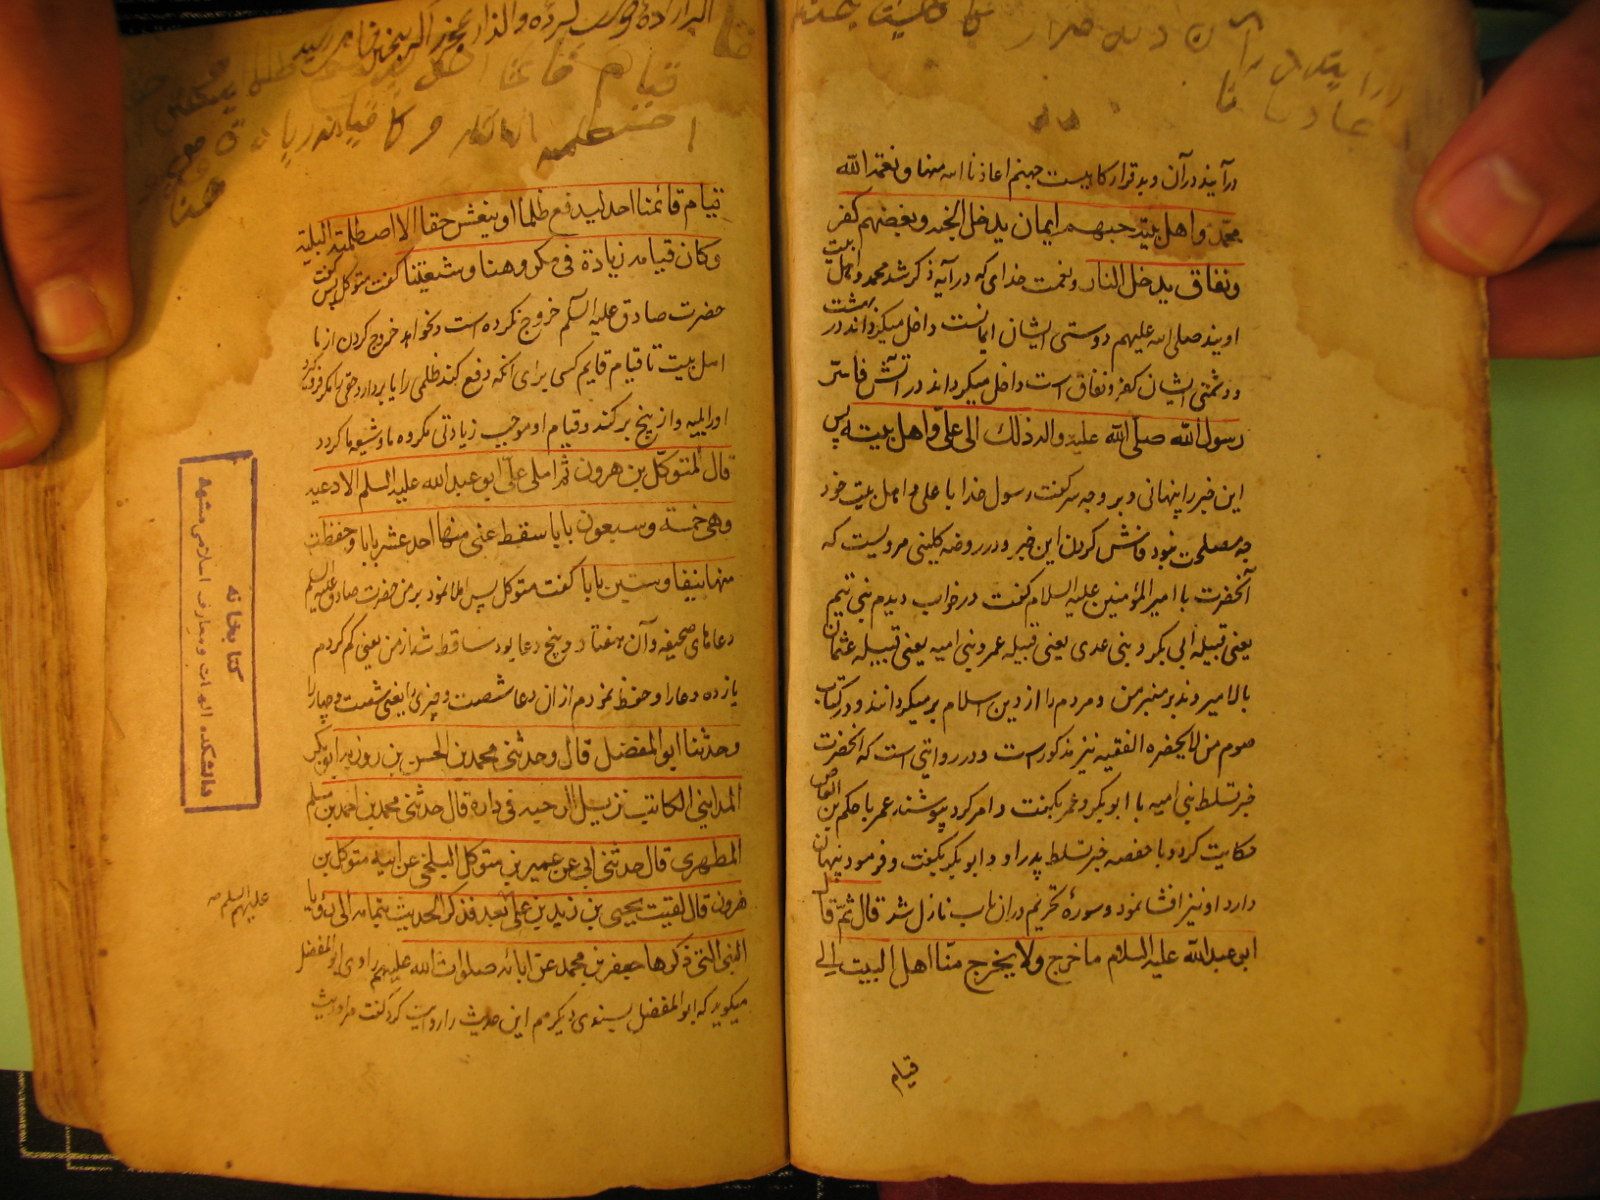 درآیند در آن و بد قرار کاهیست جهنم اعاذنا الله منها و نعمة الله
محمّد و اهل بیته حبهم ایمان یدخل الجنه و بغضهم کفر
و نفاق یدخل النار و نعمت خدای که در آیه ذکر شد محمد و اهل بیت
اویند صلی الله علیهم دوستی ایشان ایمانست داخل میکرداند در بهشت
و دشمنی ایشان کفر و نفاق است داخل میکرداند در آتش فاسّر
رسول الله صلّی الله علیه و اله ذلک الی علیّ و اهل بیته پس
این خبر را پنهانی و بر وجه سر کفت رسول خدا با علی و اهل بیت خود
چه مصلحت نبود فاش کردن این خبر و در روضه کلینی مرویست که
آنحضرت با امیر المؤمنین علیه السلام کفت در خواب دیدم بنی تیم
یعنی قبیله ابی بکر و بنی عدی یعنی قبیله عمر و بنی امیه یعنی قبیله عثمان
بالا میروند بر منبر من و مردم را از دین اسلام برمیکردانند و در کتاب
صوم من لا یحضره الفقیه نیز مذکور است و در روایتی است که آنحضرت
خبر تسلط بنی امیه با ابو بکر و عمر بکفت و امر کرد بپوشند عمر با حکم بن العاص
حکایت کرد و با حفصه خبر تسلط پدر او و ابو بکر بکفت و فرمود پنهان
دارد او نیز افشا نمود و سورهٔ تحریم در آن باب نازل شد قال ثمّ قال
ابو عبد الله علیه السلام ما خرج و لا یخرج منّا اهل البیت الی
قیام
قیام قائمنا احد لیدفع ظلما او ینعش حقا الا اصطلمته البلیة
و کان قیامه زیادة فی مکروهنا و شیعتنا کفت متوکل پس کفت
حضرت صادق علیه السلم خروج نکرده است و نخواهد خروج کردن از ما
اهل بیت تا قیام قایم کسی برای آنکه دفع کند ظلمی را یا بردارد حقی را مکر فرو کیرد
او را بلیه و از بیخ برکند و قیام او موجب زیادتی مکروه ما و شیعه ما کردد
قال المتوکّل بن هرون ثم املی علیّ ابو عبد الله علیه السلم الادعیه
و هی خمسة و سبعون بابا سقط عنی منها احد عشر بابا و حفظت
منها نیفا و ستین بابا کفت متوکل پس املا نمود بر من حضرت صادق علیه السلم
دعاهای صحیفه و آن هفتاد و پنج دعا بود ساقط شد از من یعنی کم کردم
یازده دعا را و حفظ نمودم از ان دعا شصت و چیزی را یعنی شصت و چهار را
و حدثنا ابو المفضل قال و حدثنی محمد بن الحسن بن روزبه ابو بکر
المداینی الکاتب نزیل الرحبه فی داره قال حدثنی محمد بن احمد بن مسلم
المطهری قال حدثنی ابی عن عمیر بن متوکل البلخی عن ابیه متوکل بن
هرون قال لقیت یحیی بن زید بن علی بعد فذکر الحدیث بتمامه الی رؤیا
علیهم السلم
النبی التی ذکرها جعفر بن محمد عن ابائه صلوات الله علیهم راوی ابو المفضل
میکوید که ابو المفضل بسندی دیکر هم این حدیث را روایت کرد کفت مرا حدیث
کتابخانه
دانشکده الهیات و معارف اسلامی مشهد